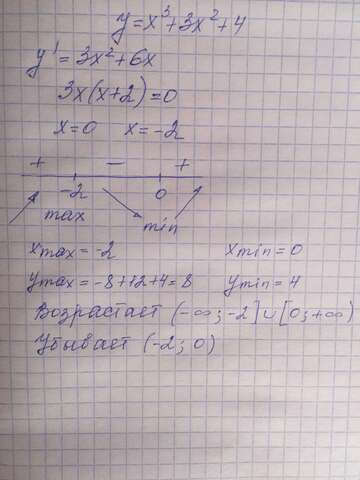 y=x³+3x²+4
y'=3x²+6x
3x(x+2)=0
x=0 x=-2
+ − +
-2 0
max min
xmax=-2 xmin=0
ymax=-8+12+4=8 ymin=4
Возрастает (-∞;-2]∪[0;+∞)
Убывает (-2;0)